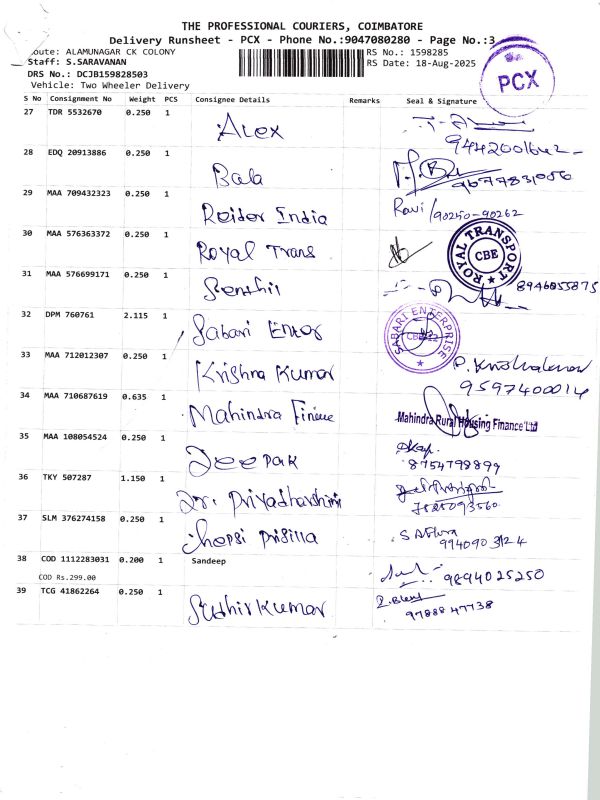 THE PROFESSIONAL COURIERS, COIMBATORE
Delivery Runsheet - PCX - Phone No.:9047080280 - Page No.:3
oute: ALAMUNAGAR CK COLONY
RS No.: 1598285
Staff: S.SARAVANAN
RS Date: 18-Aug-2025
DRS No.: DCJB159828503
Vehicle: Two Wheeler Delivery
PCX
S No Consignment No Weight PCS Consignee Details Remarks Seal & Signature
27 TDR 5532670 0.250 1 Alex
28 EDQ 20913886 0.250 1 Bala
29 MAA 709432323 0.250 1 Reider India Ravi/90250-90262
30 MAA 576363372 0.250 1 Royal Trans ROYAL TRANSPORT CBE
31 MAA 576699171 0.250 1 Senthil 8946055875
32 DPM 760761 2.115 1 Sabari Enter SABARI ENTERPRISE
33 MAA 712012307 0.250 1 Krishna Kumar 9597400014
34 MAA 710687619 0.635 1 Mahindra Finance Mahindra Rural Housing Finance Ltd
35 MAA 108054524 0.250 1 Deepak 8754798899
36 TKY 507287 1.150 1 Dr. Priyadharshini 7525093560
37 SLM 376274158 0.250 1 Jhepsi Prisilla
38 COD 1112283031 0.200 1 Sandeep 9894025250
COD Rs.299.00
39 TCG 41862264 0.250 1 Sudhir Kumar 9788847738